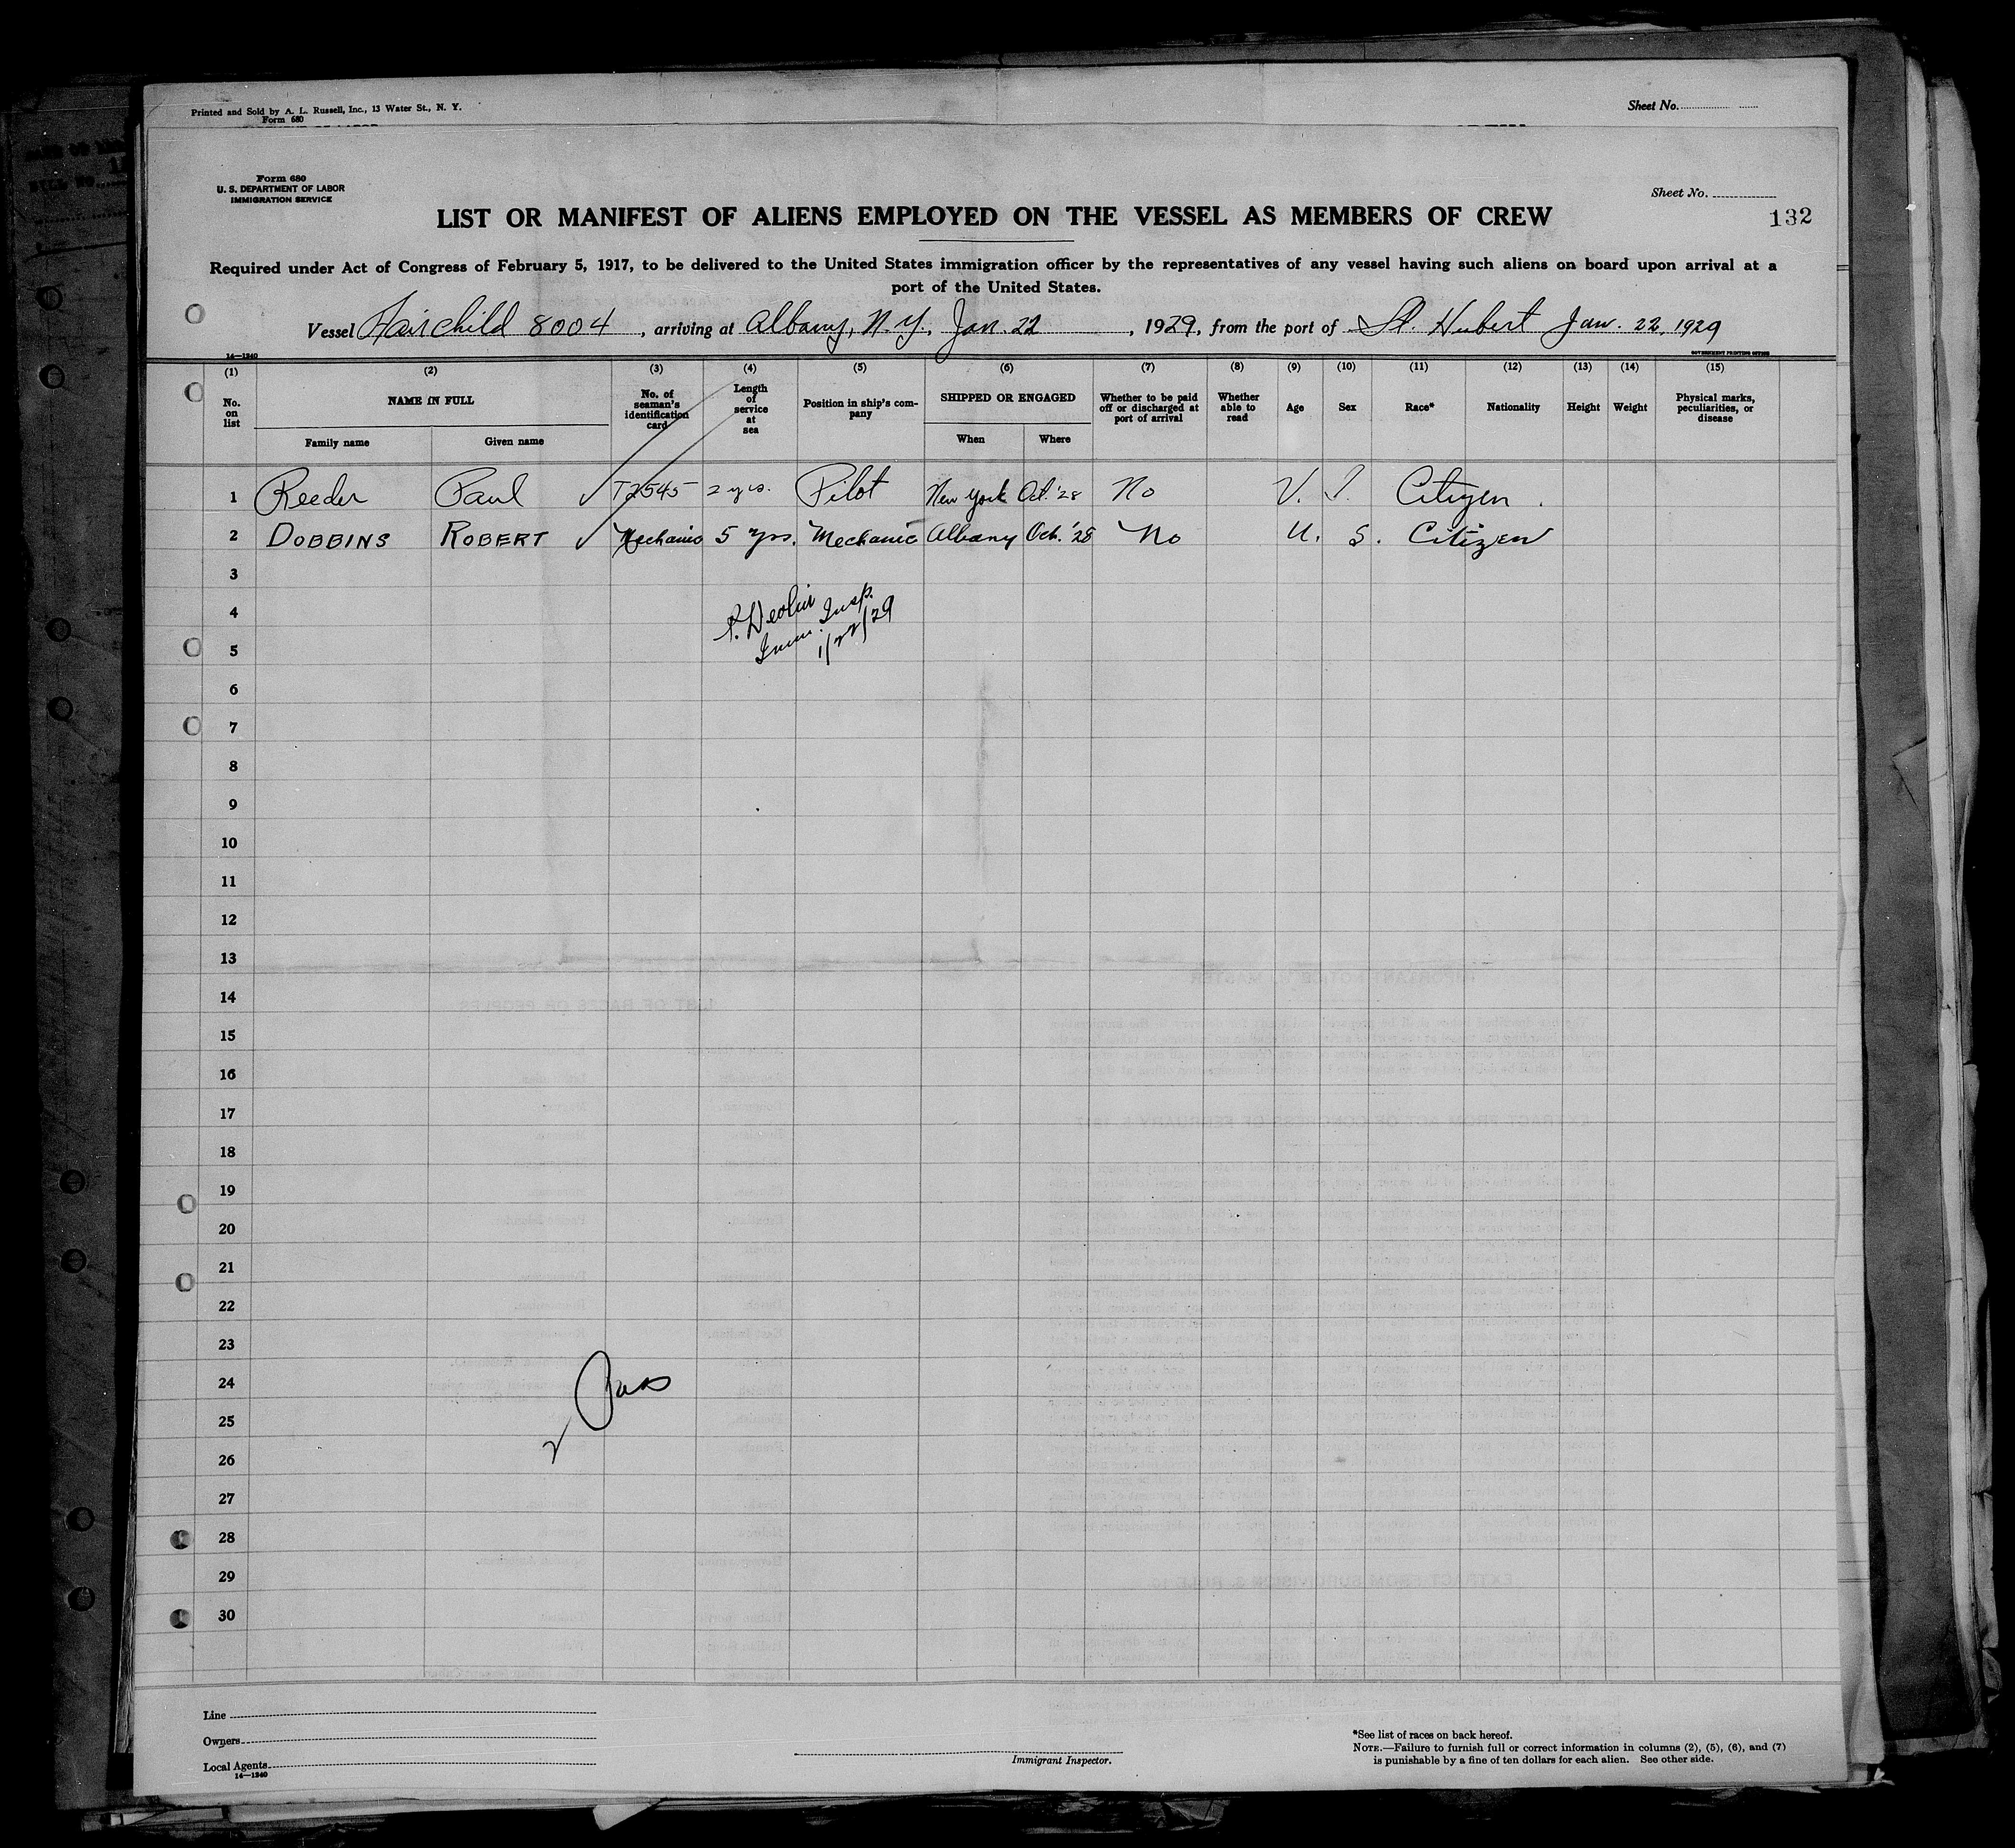 Printed and Sold by A. L. Russell, Inc., 13 Water St., N. Y.
Form 680
Sheet No.
Form 680
U. S. DEPARTMENT OF LABOR
IMMIGRATION SERVICE
Sheet No.
132
LIST OR MANIFEST OF ALIENS EMPLOYED ON THE VESSEL AS MEMBERS OF CREW
Required under Act of Congress of February 5, 1917, to be delivered to the United States immigration officer by the representatives of any vessel having such aliens on board upon arrival at a
port of the United States.
Vessel Fairchild 8004, arriving at Albany, N.Y., Jan. 22, 1929, from the port of St. Hubert Jan. 22, 1929
14—1240
GOVERNMENT PRINTING OFFICE
(1) (2) (3) (4) (5) (6) (7) (8) (9) (10) (11) (12) (13) (14) (15)
No. on list
NAME IN FULL
Family name
Given name
No. of seaman's identification card
Length of service at sea
Position in ship's company
SHIPPED OR ENGAGED
When
Where
Whether to be paid off or discharged at port of arrival
Whether able to read
Age
Sex
Race*
Nationality
Height
Weight
Physical marks, peculiarities, or disease
1 Reeder Paul ✓ T2545 2 yrs. Pilot New York Oct. '28 No U. S. Citizen.
2 DOBBINS ROBERT ✓ Mechanic 5 yrs. Mechanic Albany Oct. '28 No U. S. Citizen
3
4
P. Devlin
Imm. Insp.
1/22/29
5
6
7
8
9
10
11
12
13
14
15
16
17
18
19
20
21
22
23
24
Pass
25
26
27
28
29
30
Line
Owners
Local Agents
14—1240
Immigrant Inspector.
*See list of races on back hereof.
NOTE.—Failure to furnish full or correct information in columns (2), (5), (6), and (7)
is punishable by a fine of ten dollars for each alien. See other side.